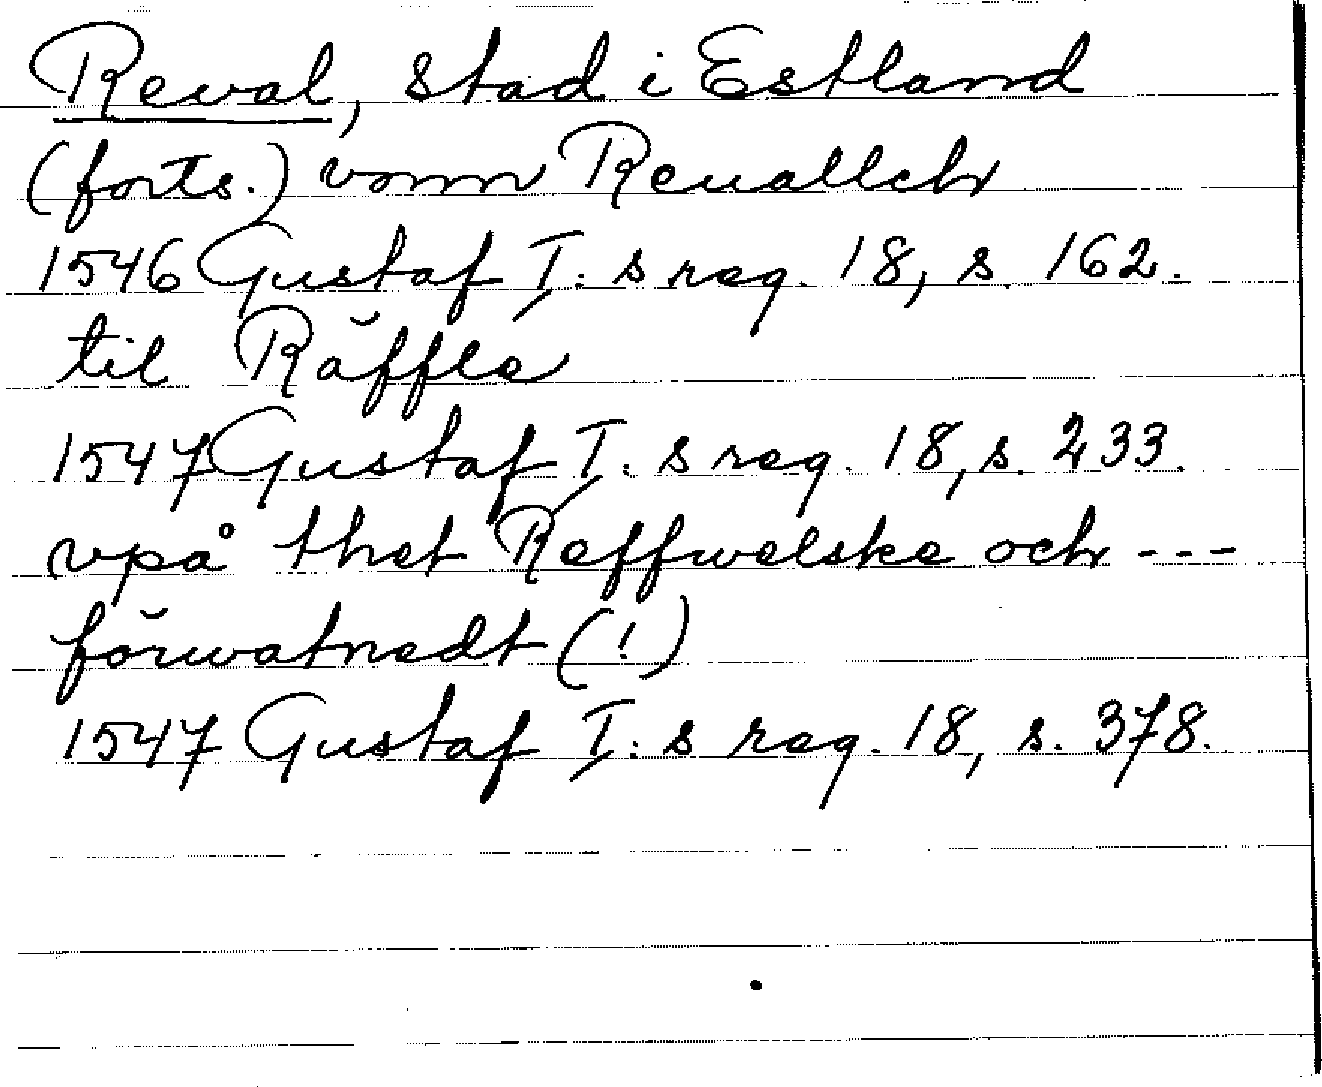 Reval, stad i Estland
(forts.) vonn Reuallch
1546 Gustaf I:s reg. 18, s. 162.
til Räffle
1547 Gustaf I:s reg. 18, s. 233.
vpå thet Reffwelske och ---
förwatnedt (!)
1547 Gustaf I:s reg. 18, s. 378.